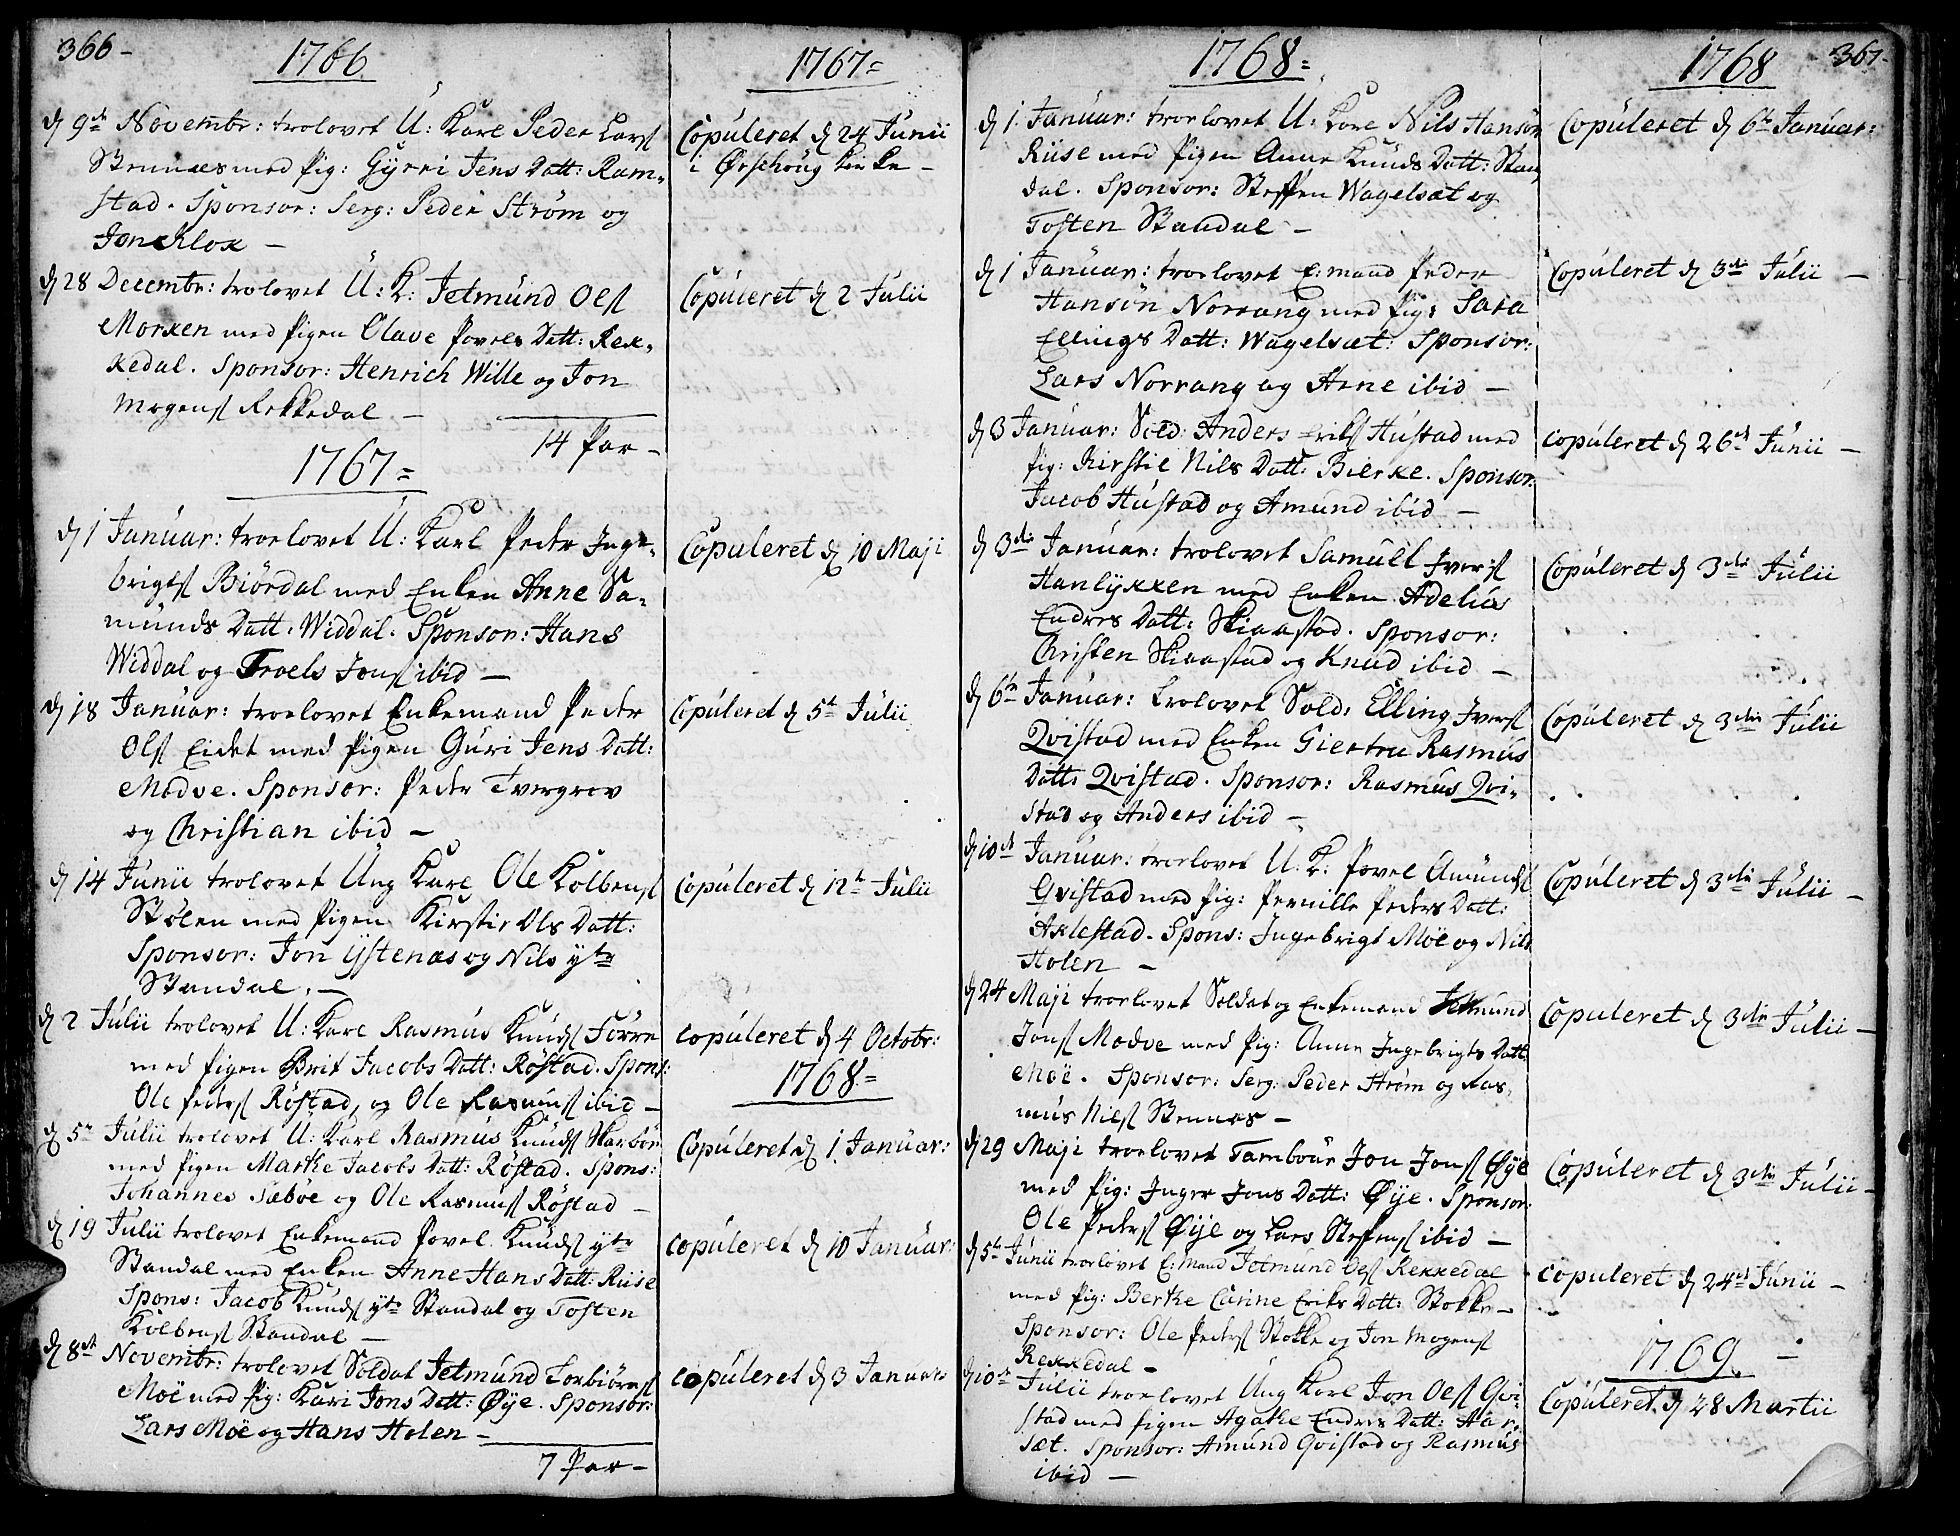 366-
1766
d 9de Novembr: trolovet U: Karl Peder Lars
Stennæs med Pig: Gyrri Jens Datt: Ram-
stad. Sponsor: Serg: Peder Strøm og
Jon Klox -
d 28 Decembr: trolovet U: K: Jetmund Ols
Morken med Pigen Olave Povels Datt: Rek-
kedal. Sponsor: Henrich Wille og Jon
Mogens Rekkedal -
14 Par -
1767=
d 1 Januar: troelovet U: Karl Peder Inge-
brigts Biørdal med Enken Anne Sa-
munds Datt: Widdal. Sponsor: Hans
Widdal og Troels Jons ibid -
d 18 Januar: troelovet Enkemand Peder
Ols Eidet med Pigen Guri Jens Datt:
Modve. Sponsor: Peder Tvergrov
og Christian ibid -
d 14 Junii trolovet Ung Karl Ole Kolbens
Stølen med Pigen Kirstie Ols Datt:
Sponsor: Jon Ystenæs og Nils ytr
Standal. -
d 2 Julii trolovet U: Karl Rasmus Knuds Førre
med Pigen Brit Jacobs Datt: Røstad. Spons:
Ole Peders Røstad, og Ole Rasmus ibid -
d 5te Julii trolovet U: Karl Rasmus Knuds Skarbøe
med Pigen Marthe Jacobs Datt: Røstad. Spons:
Johannes Sæbøe og Ole Rasmus Røstad -
d 19 Julii trolovet Enkemand Povel Knuds ytr
Standal med Enken Anne Hans Datt: Riise
Spons: Jacob Knuds ytr Standal og Tosten
Kolbens Standal -
d 8de Novembr: trolovet Soldat Jetmund Torbiørns
Moe med Pig: Kari Jons Datt: Øye. Sponsor:
Lars Moe og Hans Holen -
7 Par -
1767=
Copuleret d 24 Junii
i Ørschoug kirke -
Copuleret d 2 Julii
Copuleret d 10 Maji
Copuleret d 5te Julii
Copuleret d 12te Julii
copuleret d 4 Octobr:
1768=
Copuleret d 1 Januar:
copuleret d 10 Januar:
copuleret d 3 Januar:
1768=
d 1 Januar: troelovet U: Karl Nils Hansøn
Riise med Pigen Anne Knuds Datt: Stan-
dal. Sponsor: Steffen Wagelsæt og
Tosten Standal -
d 1 Januar: troelovet E: mand Peder
Hansøn Norrang med Pig: Sara
Ellings Datt: Wagelsæt: Sponsor:
Lars Norrang og Arne ibid -
d 3 Januar: Sold: Anders Eriks Hustad med
Pig: Kirstie Nils Datt: Bierke. Sponsor:
Jacob Hustad og Amund ibid -
d 3die Januar: trolovet Samuel Ivers
Hanlykken med Enken Adelus
Endres Datt: Skiaastad. Sponsor:
Christen Skiaastad og Knud ibid -
d 6te Januar: trolovet Sold: Elling Ivers
Qvistad med Enken Giertru Rasmus
Datt: Qvistad. Sponsor: Rasmus Qvi-
stad og Anders ibid -
d 10de Januar: troelovet U: K: Povel Amunds
Qvistad med Pig: Pernille Peders Datt:
Aklestad. Spons: Ingebrigt Moe og Nils
Holen -
d 24 Maji troelovet Soldat og Enkemand Jetmund
Jons Modve med Pig: Anne Ingebrigts Datt:
Moe. Sponsor: Serg: Peder Strøm og Ras-
mus Nils Stennes -
d 29 Maji troelovet Tambour Jon Jons Øye
med Pig: Inger Jons Datt: Øye. Sponsor:
Ole Peders Øye og Lars Steffens ibid -
d 5te Junii troelovet E: mand Jetmund Ols Rekkedal
med Pig: Berthe Carine Eriks Datt: Stokke -
Sponsor: Ole Peders Stokke og Jon Mogens
Rekkedal -
d 10de Julii troelovet Ung Karl Jon Ols Qvi-
stad med Pigen Agathe Endres Datt: Aar-
sæt. Sponsor: Amund Qvistad og Rasmus
ibid -
1768
367-
Copuleret d 6te Januar:
Copuleret d 3die Julii -
copuleret d 26de Junii -
Copuleret d 3die Julii
Copuleret d 3die Julii
Copuleret d 3die Julii -
Copuleret d 3die Julii -
Copuleret d 3die Julii -
copuleret d 24de Junii -
1769. -
Copuleret d 28 Martii